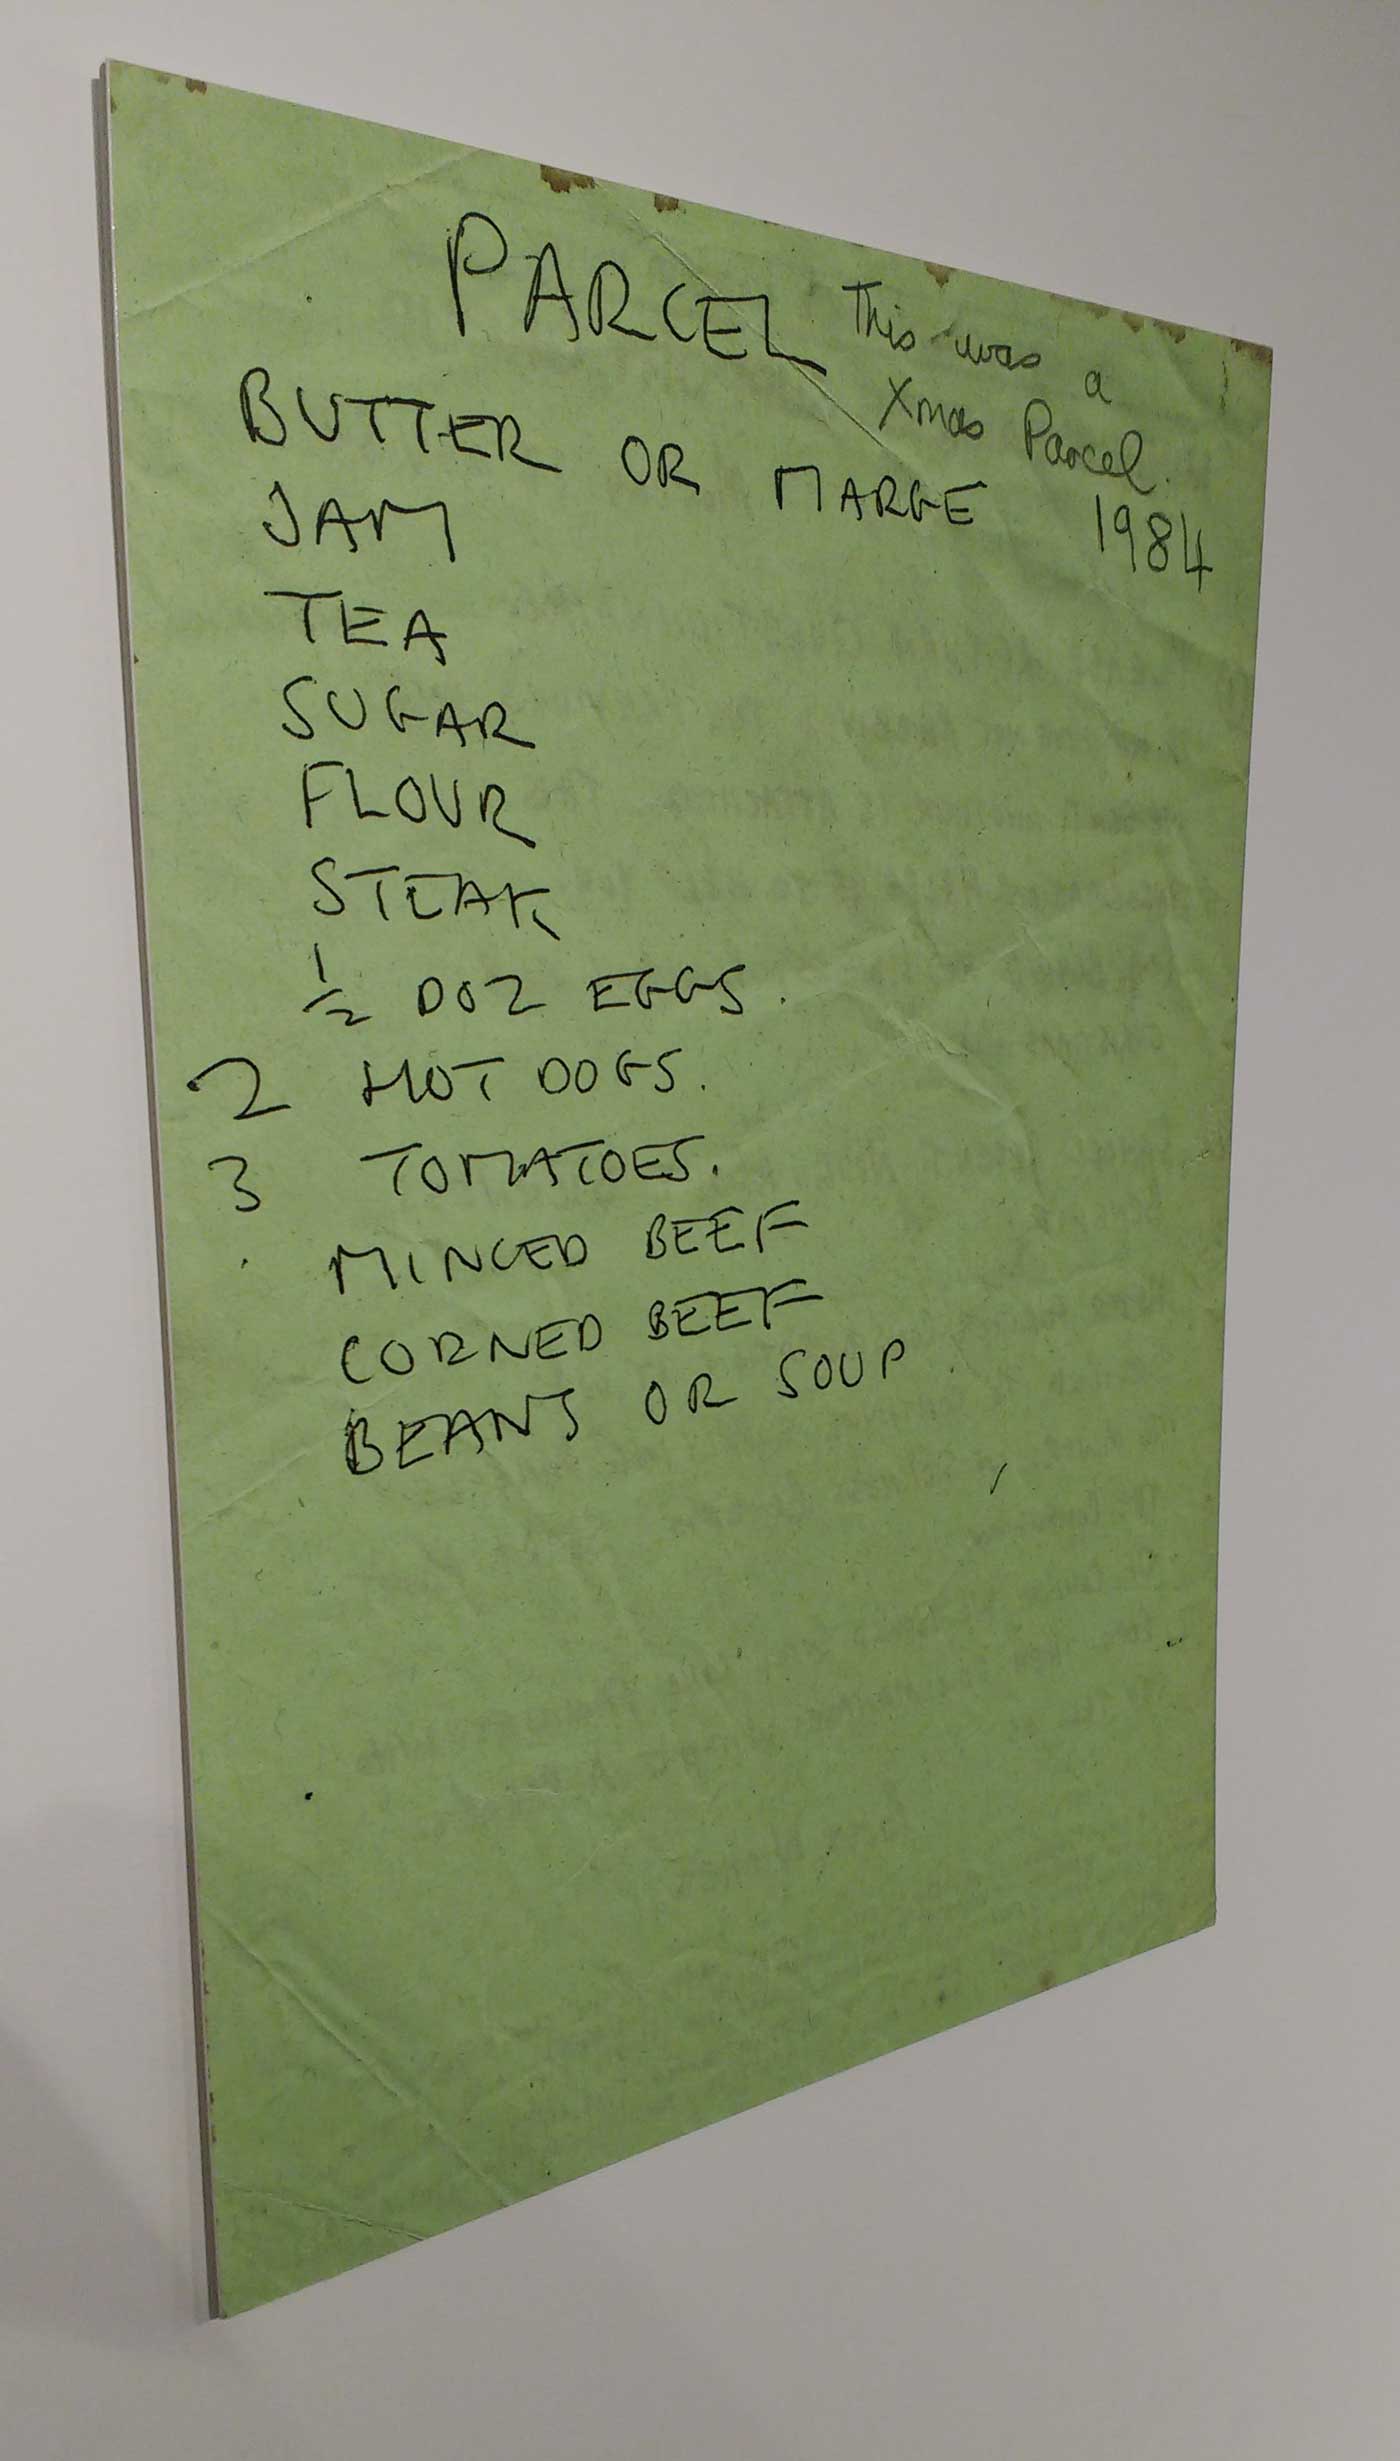 PARCEL
This was a
Xmas Parcel.
1984
BUTTER OR MARGE
JAM
TEA
SUGAR
FLOUR
STEAK
½ DOZ EGGS.
2 HOT DOGS.
3 TOMATOES.
MINCED BEEF
CORNED BEEF
BEANS OR SOUP